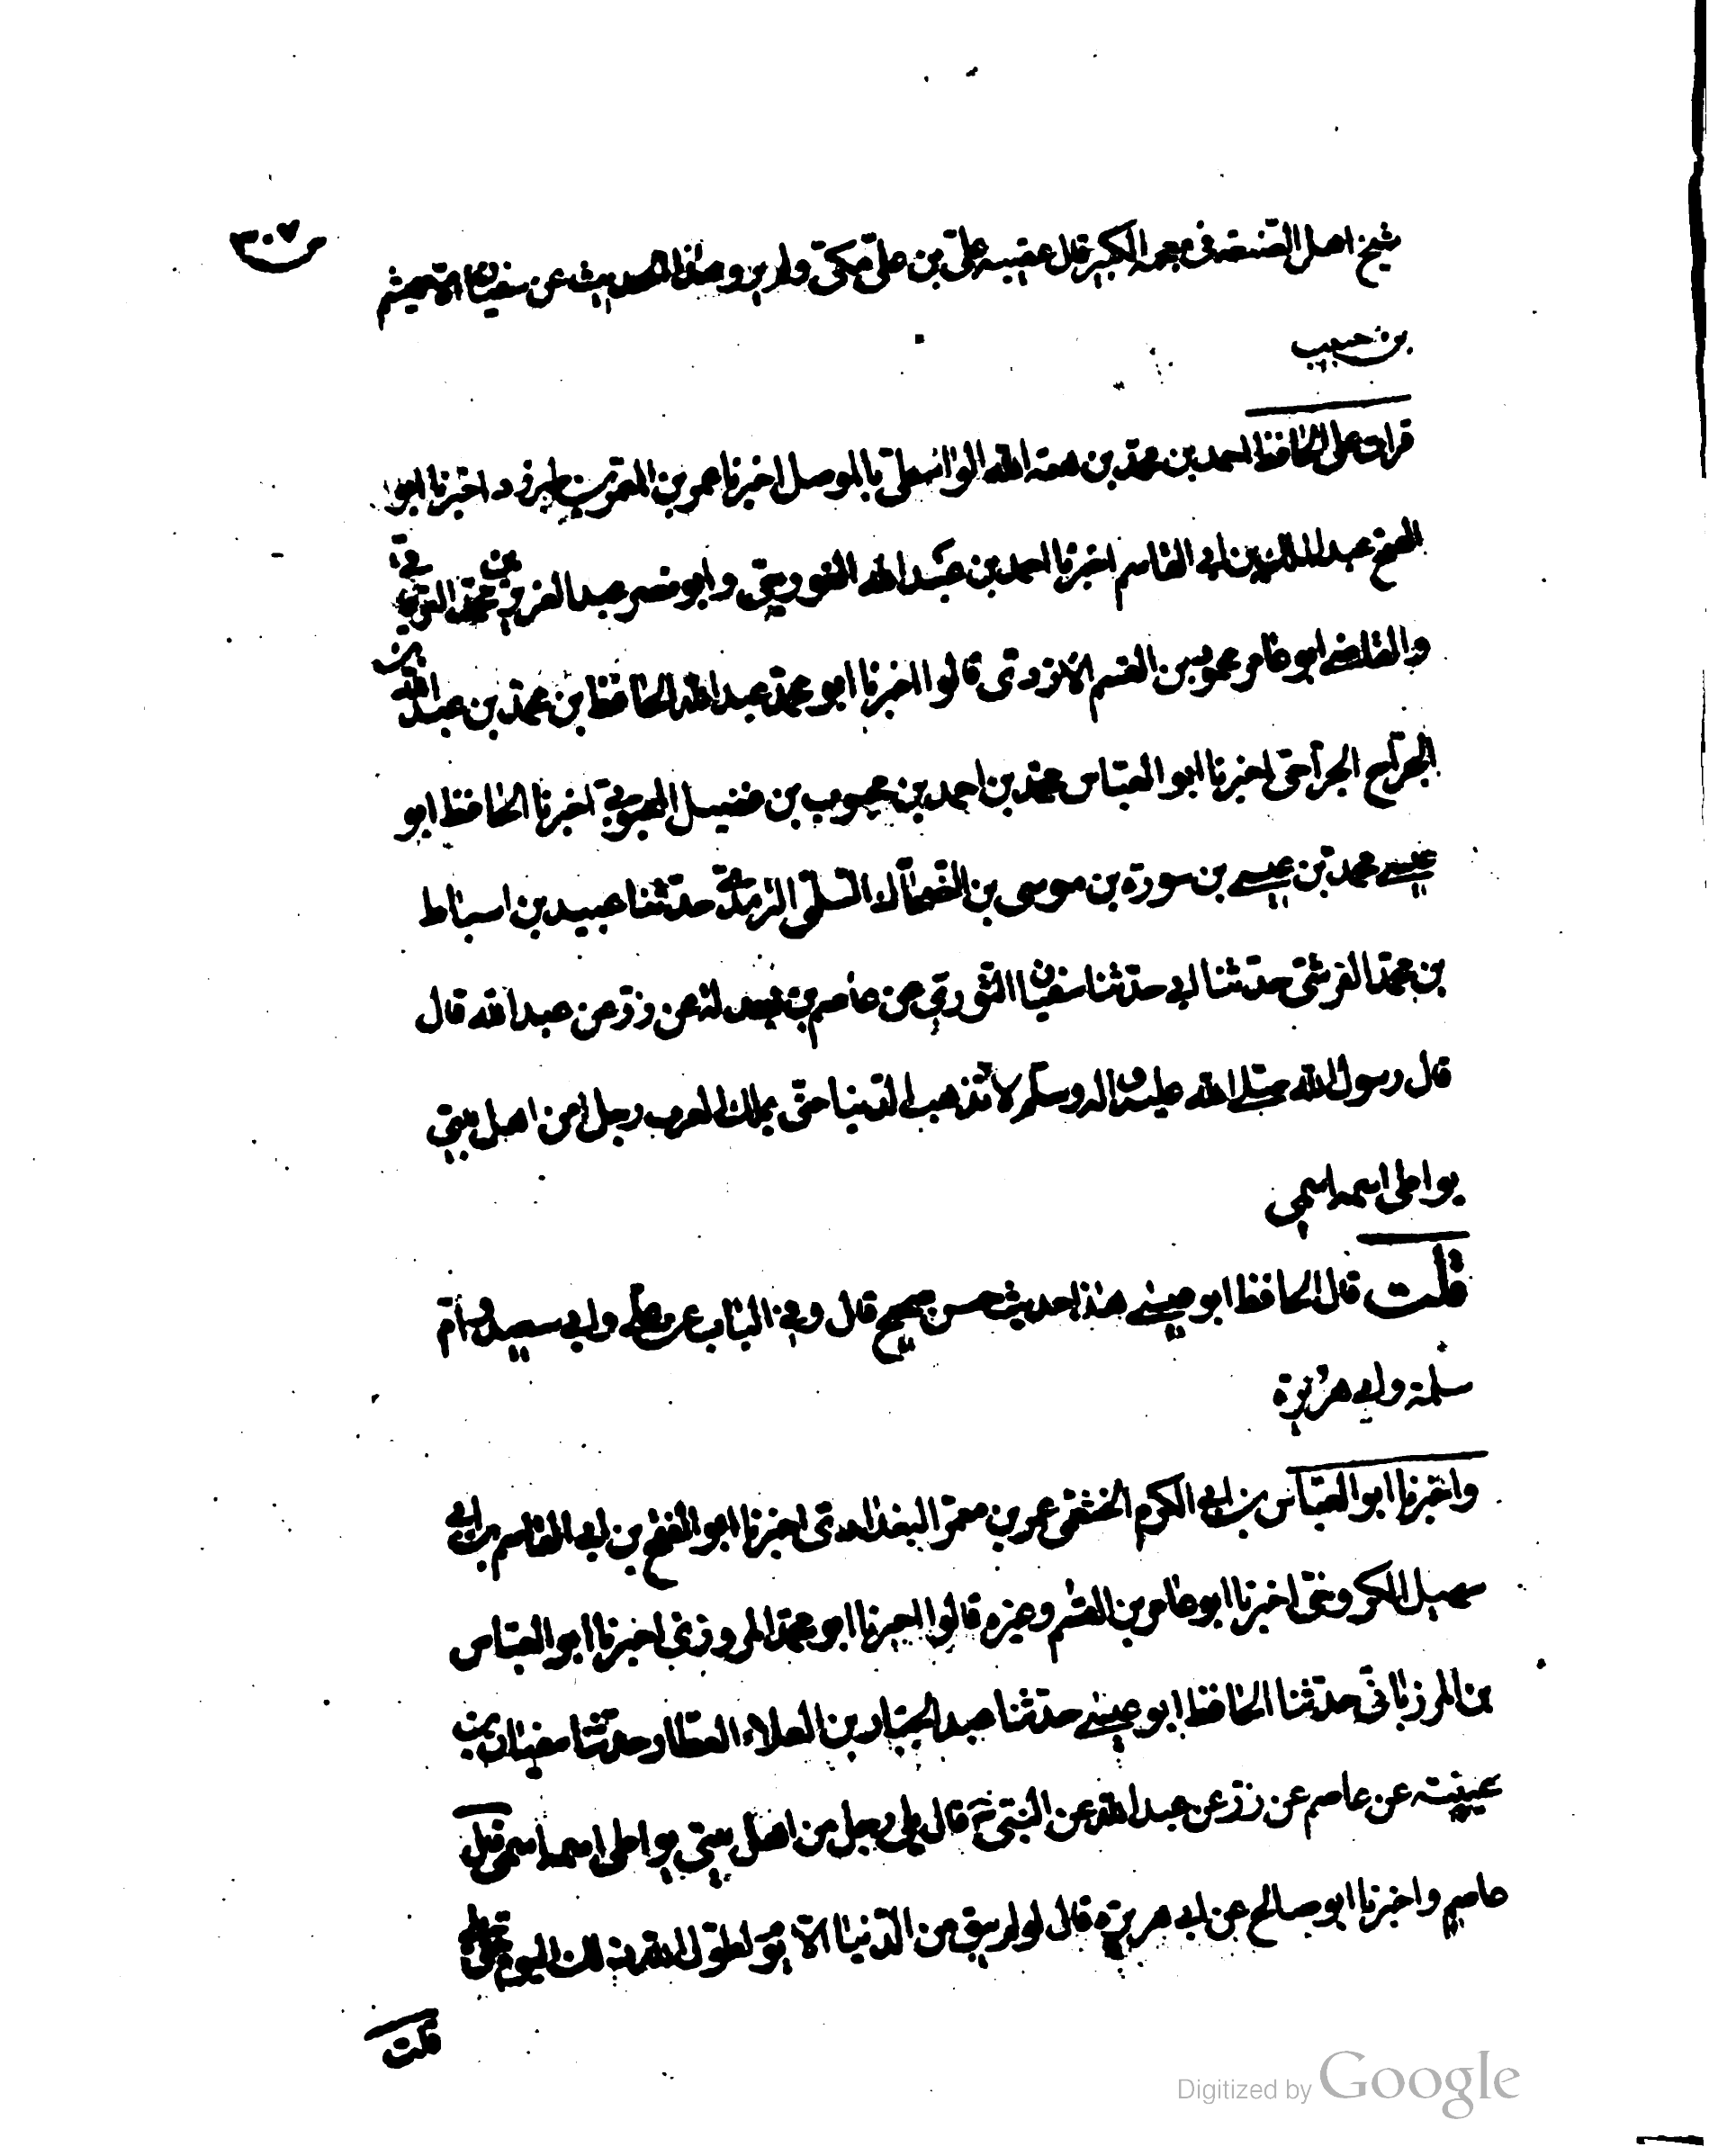 شيخ اهل الصنعة في معجمه الكبير قال عقيبه علي بن علي مكي ولم يرو هذا الحديث عن سفيان الا الهيثم
بن حبيب
قرات على الحافظ احمد بن محمد بن هبة الله الواسطي بالموصل اخبرنا عمر بن المعمر بن طبرزد اخبرنا ابو
الفتح عبد الملك بن ابي القاسم اخبرنا احمد بن عبد الله الغورجي وابو نصر عبد العزيز بن محمد الترياقي
والقاضي ابو عامر محمود بن القسم الازدي قالوا اخبرنا ابو محمد عبد الله الحافظ بن محمد بن عبد الله بن
الجراح الجراحي اخبرنا ابو العباس محمد بن احمد بن محبوب بن فضيل المحبوبي اخبرنا الحافظ ابو
عيسى محمد بن عيسى بن سورة بن موسى بن الضحاك السلمي الترمذي حدثنا عبيد بن اسباط
بن محمد القرشي حدثنا ابي حدثنا سفيان الثوري عن عاصم بن بهدلة عن زر عن عبد الله قال
قال رسول الله صلى الله عليه واله وسلم لا تذهب الدنيا حتى يملك العرب رجل من اهل بيتي
يواطي اسمه اسمي
قلت قال الحافظ ابو عيسى هذا حديث حسن صحيح قال وفي الباب عن علي وابي سعيد وام
سلمة وابي هريرة
واخبرنا ابو العباس بن ابي الكرم الخثعمي عمر بن معمر البغدادي اخبرنا ابو الفتح بن ابي القاسم بن ابي
سهيل الكروخي اخبرنا ابو عامر بن القسم وغيره قالوا اخبرنا ابو محمد المروزي اخبرنا ابو العباس
بن المرزباني حدثنا الحافظ ابو عيسى حدثنا عبد الجبار بن العلاء العطار حدثنا سفيان بن
عيينة عن عاصم عن زر عن عبد الله عن النبي ص قال يلي رجل من اهل بيتي يواطي اسمه اسمي قال
عاصم واخبرنا ابو صالح عن ابي هريرة قال لو لم يبق من الدنيا الا يوم لطول الله ذلك اليوم حتى يلي
قلت